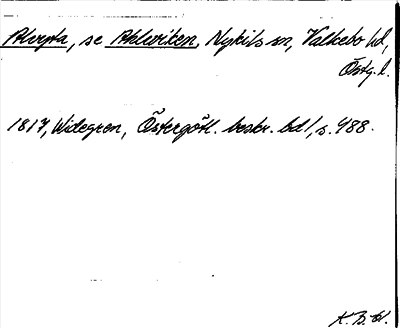 Alvyta, se Ahlwiken, Nykils sn, Valkebo hd,
Östg. l.
1817, Widegren, Östergötl. beskr. bd 1, s. 488.